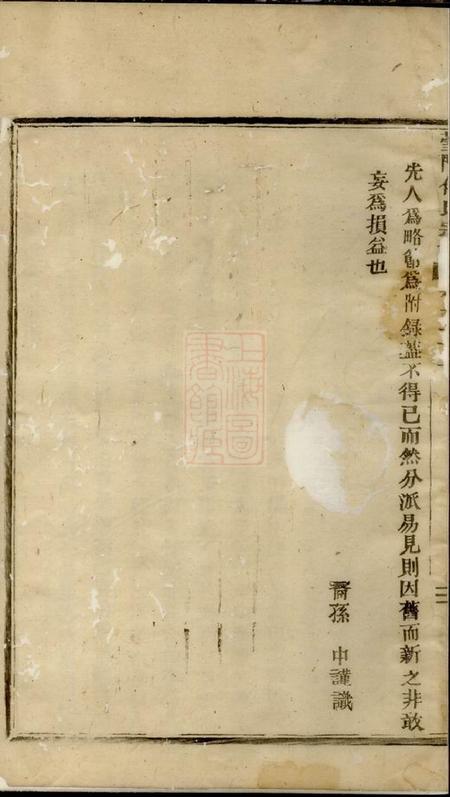 先人為略即為附錄蓋不得已而然分派易見則因舊而新之非敢
妄為損益也
裔孫 中謹識
上海圖
書館藏